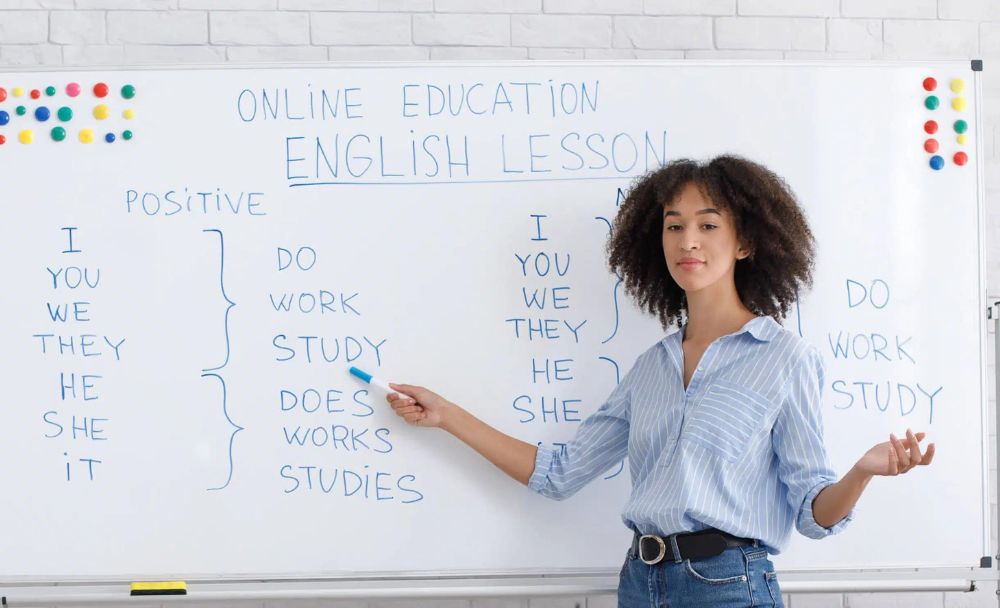 ONLINE EDUCATION
ENGLISH LESSON
POSITIVE
I
YOU
WE
THEY
HE
SHE
iT
DO
WORK
STUDY
DOES
WORKS
STUDIES
I
YOU
WE
THEY
HE
SHE
iT
DO
WORK
STUDY